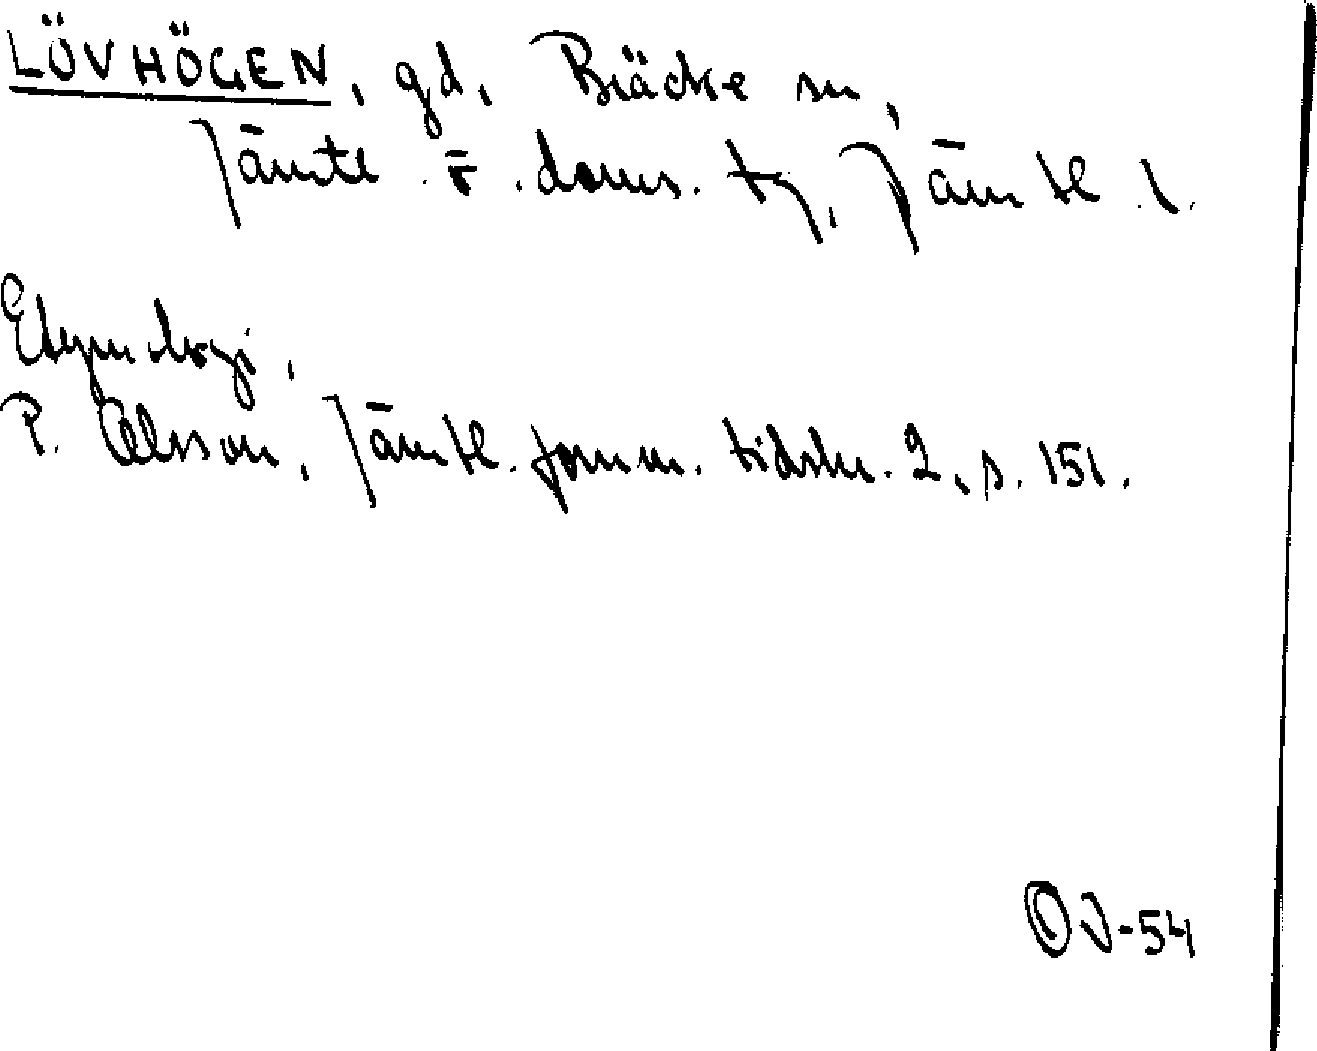 LÖVHÖGEN, gd, Bräcke sn,
Jämtl. ö. doms. tg, Jämtl. l.
Etymologi.
P. Olsson, Jämtl. fornm. tidskr. 2, s. 151.
OJ-54